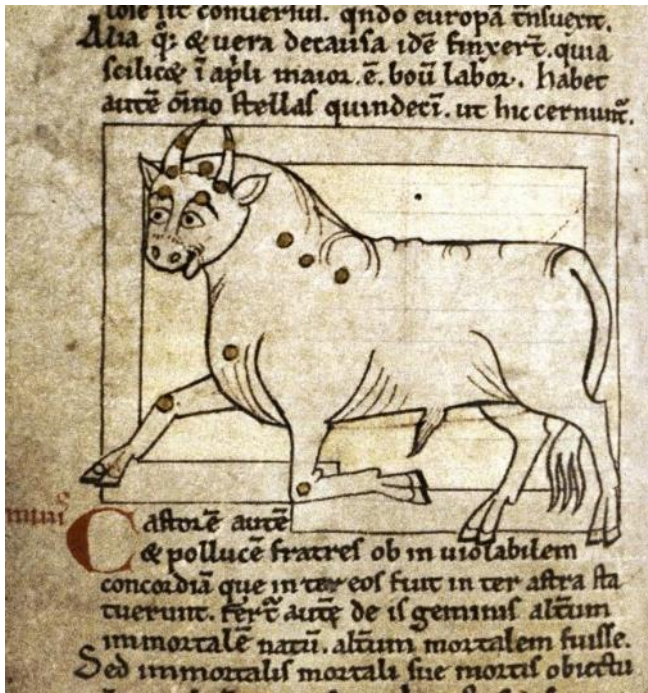 sit conuersus. qndo europā tnsuexit.
Alia q; & uera de causa idē finxert̄. quia
scilicet ī apli maior. ē. boū labor. habet
autē oīno stellas quindecī. ut hic cernunt̄.
Castorē autē
& pollucē fratres ob in uiolabilem
concordiā que in ter eos fuit in ter astra sta
tuerunt. fert̄ autē de is geminis alt̄um
immortalē natū. alt̄um mortalem fuisse.
Sed immortalis mortali sue mortis obiectu